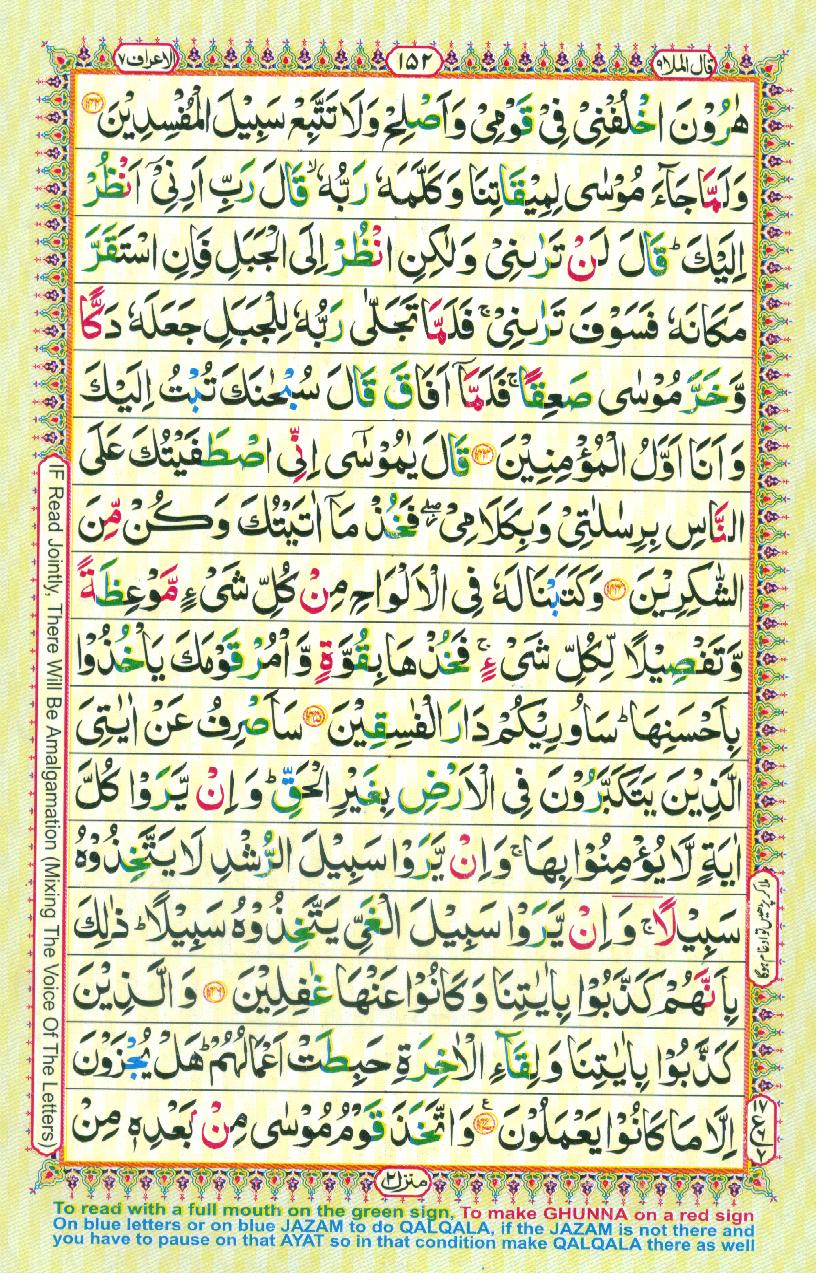 قال الملا ٩
١٥٢
الاعراف ٧
هٰرُوْنَ اخْلُفْنِىْ فِىْ قَوْمِىْ وَاَصْلِحْ وَلَا تَتَّبِعْ سَبِيْلَ الْمُفْسِدِيْنَ ﴿۱۴۲﴾
وَلَمَّا جَآءَ مُوْسٰى لِمِيْقَاتِنَا وَكَلَّمَهٗ رَبُّهٗ ۙ قَالَ رَبِّ اَرِنِىْٓ اَنْظُرْ
اِلَيْكَ ؕ قَالَ لَنْ تَرٰىنِىْ وَلٰكِنِ انْظُرْ اِلَى الْجَبَلِ فَاِنِ اسْتَقَرَّ
مَكَانَهٗ فَسَوْفَ تَرٰىنِىْ ۚ فَلَمَّا تَجَلّٰى رَبُّهٗ لِلْجَبَلِ جَعَلَهٗ دَكًّا
وَّخَرَّ مُوْسٰى صَعِقًا ۚ فَلَمَّآ اَفَاقَ قَالَ سُبْحٰنَكَ تُبْتُ اِلَيْكَ
وَاَنَا اَوَّلُ الْمُؤْمِنِيْنَ ﴿۱۴۳﴾ قَالَ يٰمُوْسٰٓى اِنِّى اصْطَفَيْتُكَ عَلَى
النَّاسِ بِرِسٰلٰتِىْ وَبِكَلَامِىْ ۖ فَخُذْ مَآ اٰتَيْتُكَ وَكُنْ مِّنَ
الشّٰكِرِيْنَ ﴿۱۴۴﴾ وَكَتَبْنَا لَهٗ فِى الْاَلْوَاحِ مِنْ كُلِّ شَىْءٍ مَّوْعِظَةً
وَّتَفْصِيْلًا لِّكُلِّ شَىْءٍ ۚ فَخُذْهَا بِقُوَّةٍ وَّاْمُرْ قَوْمَكَ يَاْخُذُوْا
بِاَحْسَنِهَا ؕ سَاُورِيْكُمْ دَارَ الْفٰسِقِيْنَ ﴿۱۴۵﴾ سَاَصْرِفُ عَنْ اٰيٰتِىَ
الَّذِيْنَ يَتَكَبَّرُوْنَ فِى الْاَرْضِ بِغَيْرِ الْحَقِّ ؕ وَاِنْ يَّرَوْا كُلَّ
اٰيَةٍ لَّا يُؤْمِنُوْا بِهَا ۚ وَاِنْ يَّرَوْا سَبِيْلَ الرُّشْدِ لَا يَتَّخِذُوْهُ
سَبِيْلًا ۚ وَاِنْ يَّرَوْا سَبِيْلَ الْغَىِّ يَتَّخِذُوْهُ سَبِيْلًا ؕ ذٰلِكَ
بِاَنَّهُمْ كَذَّبُوْا بِاٰيٰتِنَا وَكَانُوْا عَنْهَا غٰفِلِيْنَ ﴿۱۴۶﴾ وَالَّذِيْنَ
كَذَّبُوْا بِاٰيٰتِنَا وَلِقَآءِ الْاٰخِرَةِ حَبِطَتْ اَعْمَالُهُمْ ؕ هَلْ يُجْزَوْنَ
اِلَّا مَا كَانُوْا يَعْمَلُوْنَ ﴿۱۴۷﴾ ع وَاتَّخَذَ قَوْمُ مُوْسٰى مِنْۢ بَعْدِهٖ مِنْ
منزل ٢
IF Read Jointly, There Will Be Amalgamation (Mixing The Voice Of The Letters)
To read with a full mouth on the green sign, To make GHUNNA on a red sign
On blue letters or on blue JAZAM to do QALQALA, if the JAZAM is not there and
you have to pause on that AYAT so in that condition make QALQALA there as well